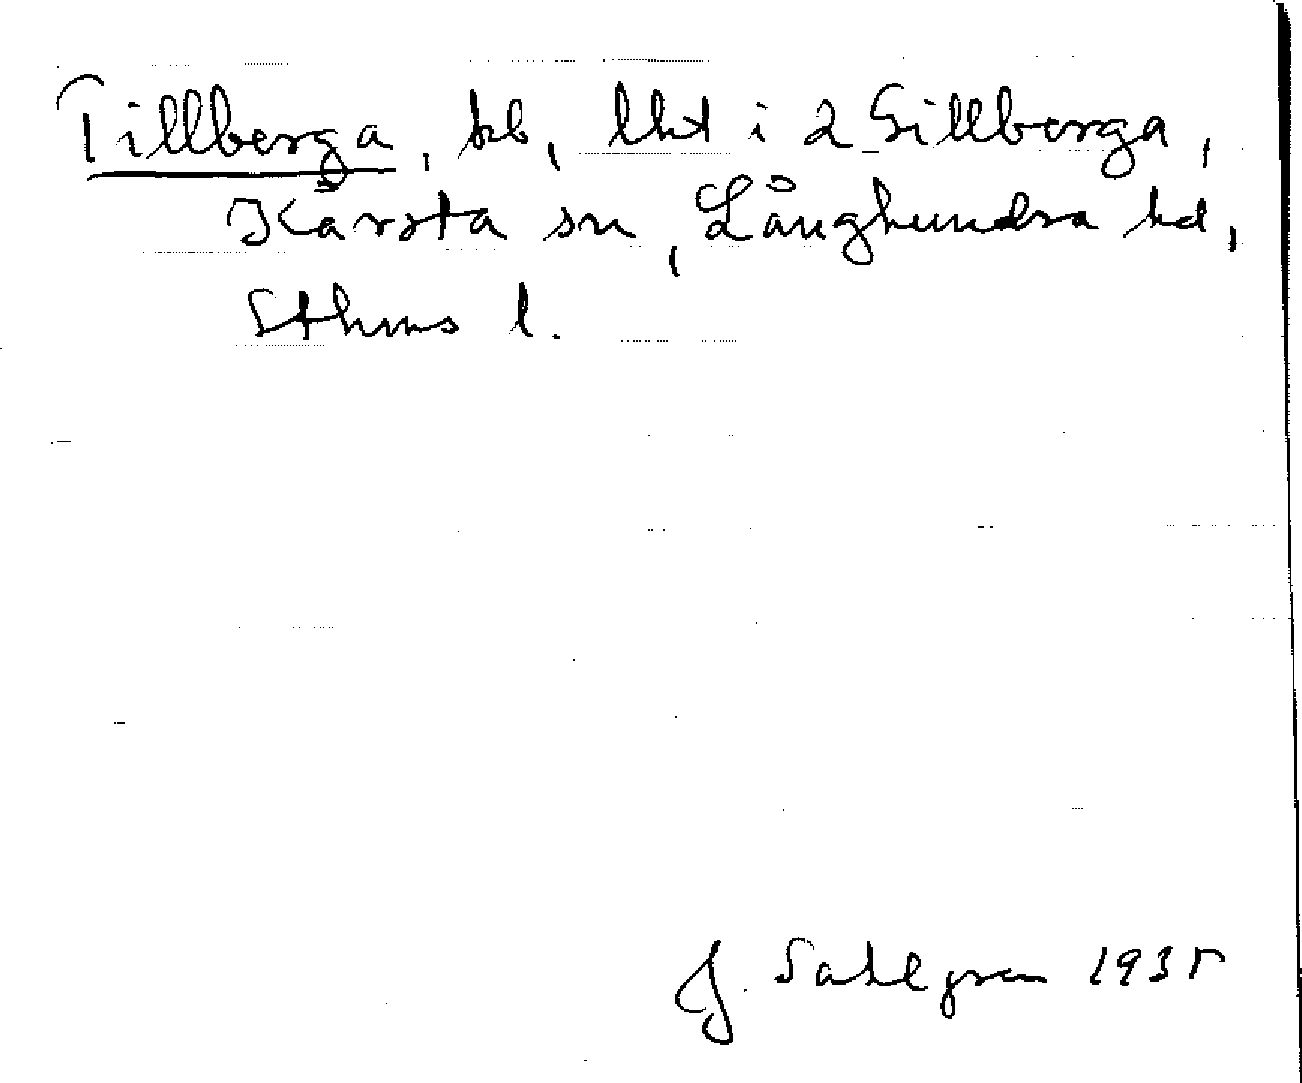 Tillberga, lht i 2 Gillberga,
Kårsta sn, Långhundra hd,
Sthms l.
J. Sahlgren 1935